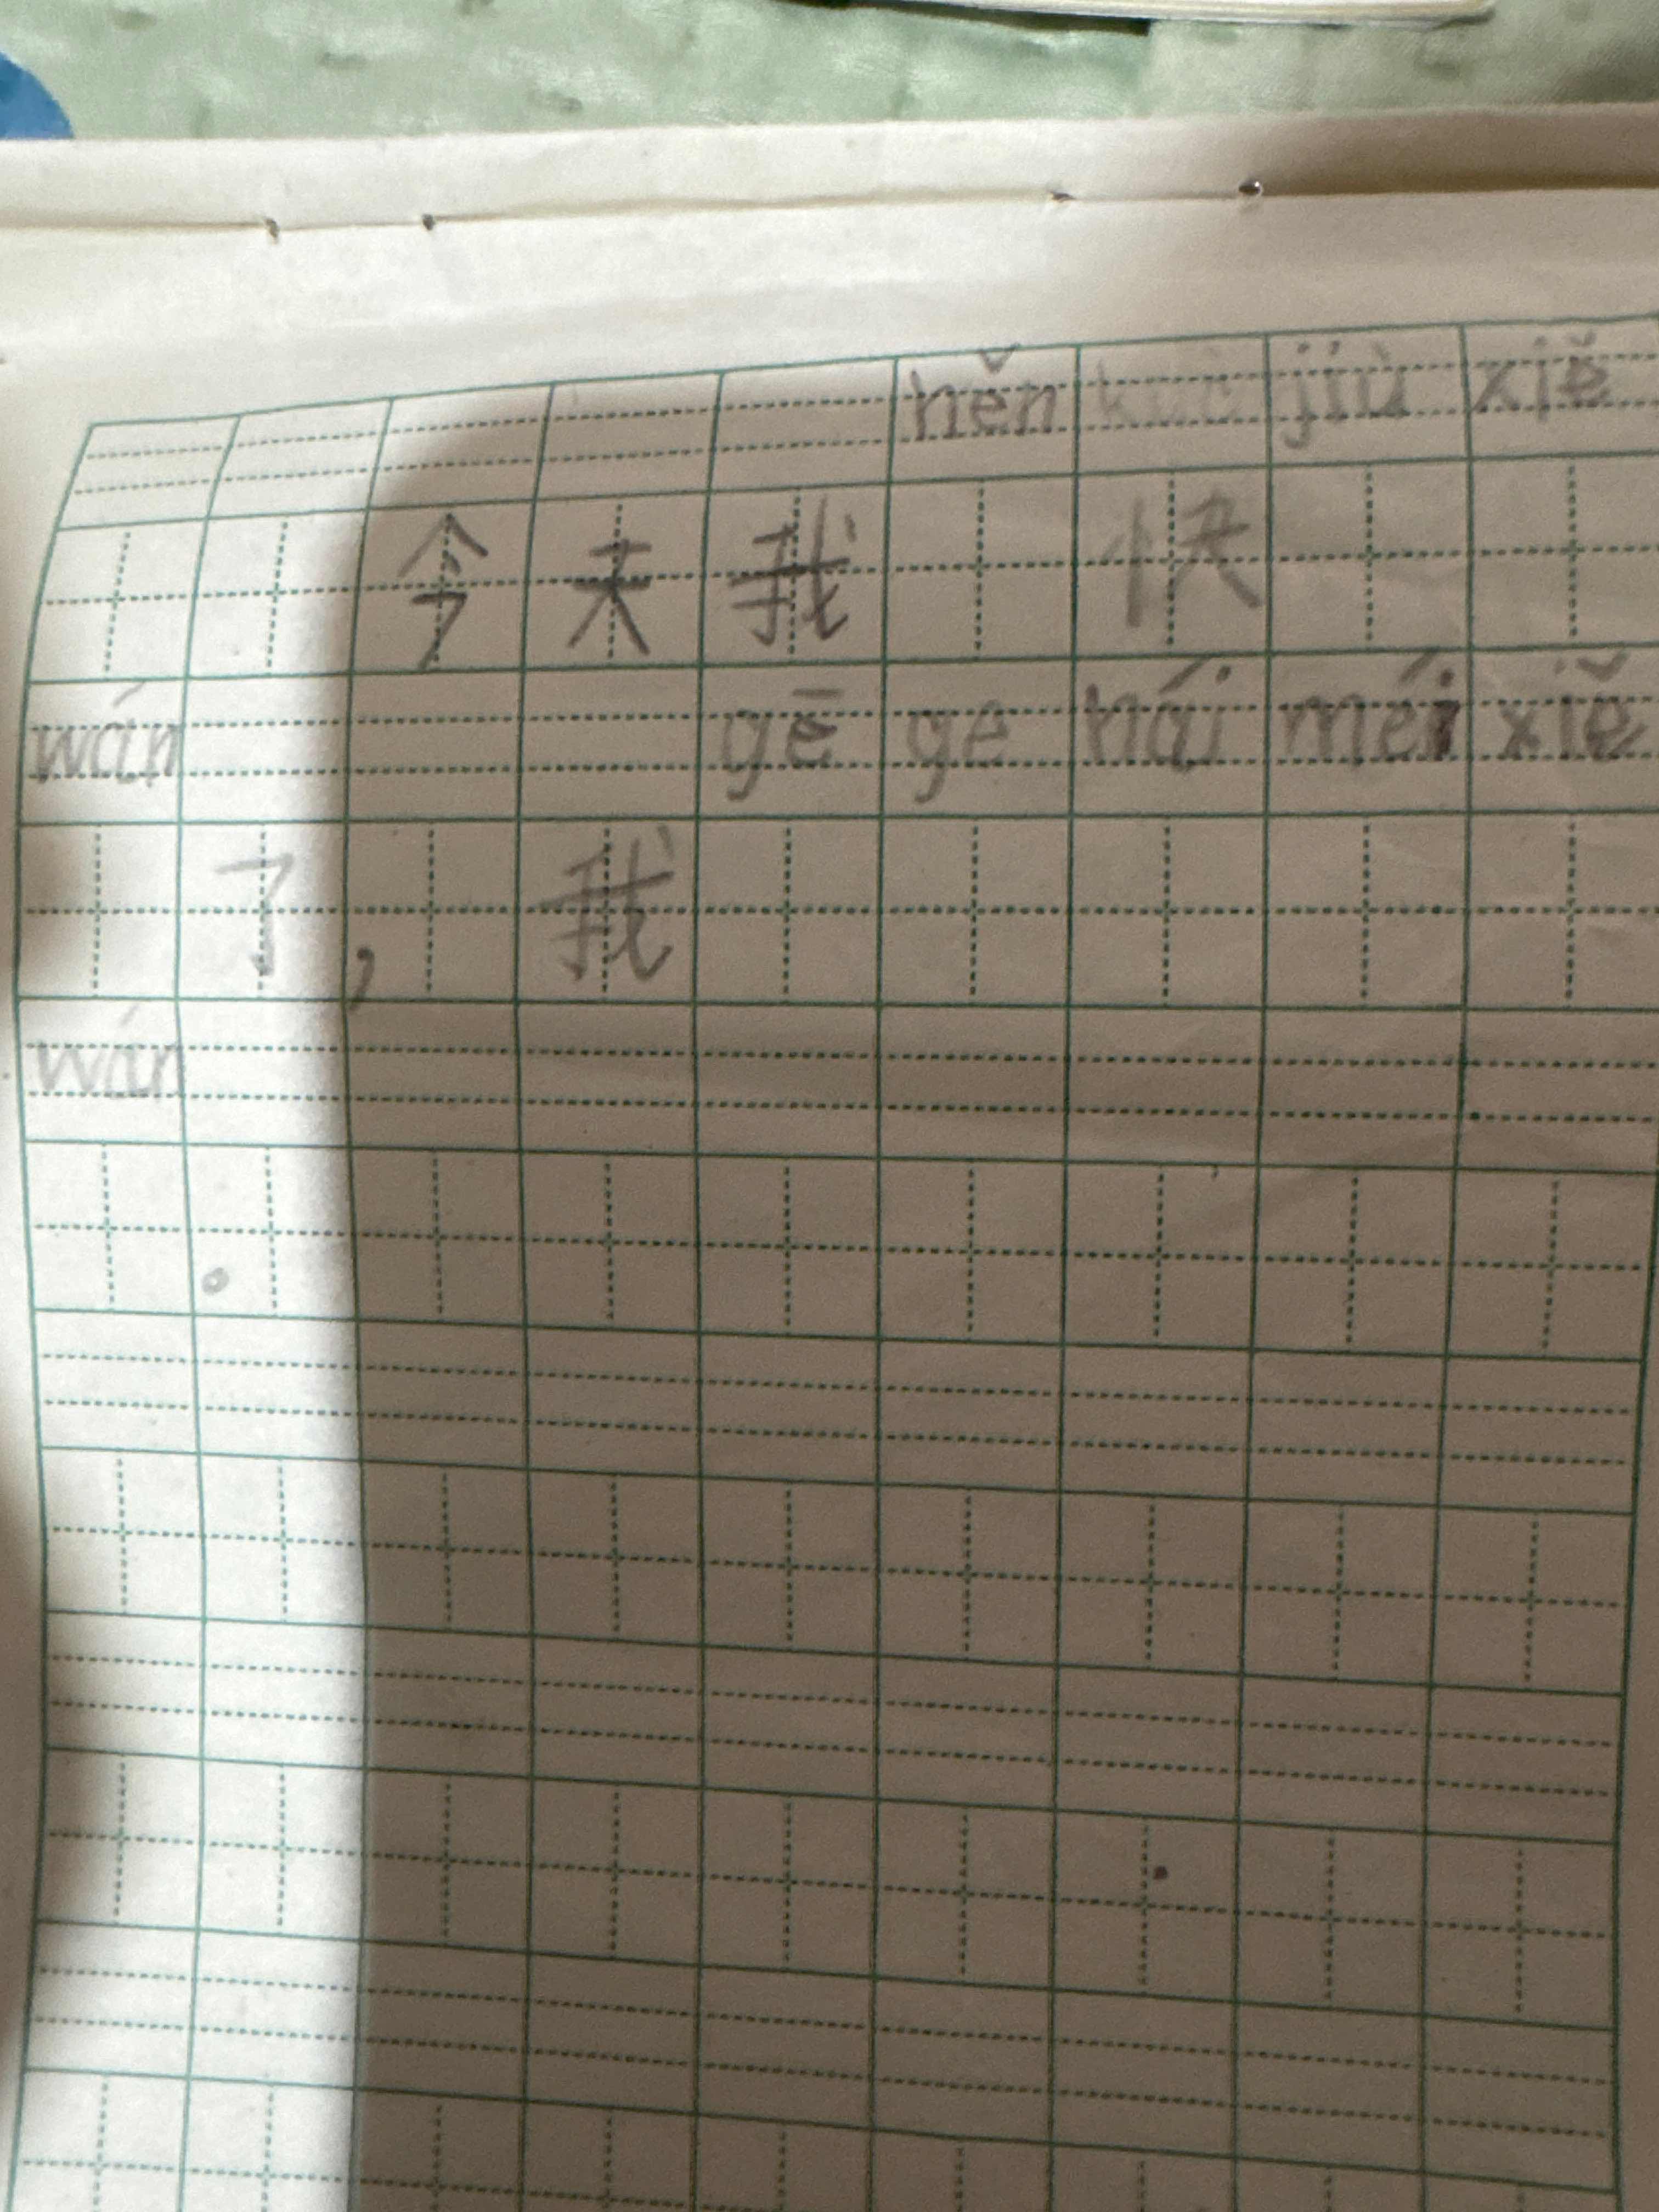 něn kuài jiù xiě
今天我 快
wán gē ge hái méi xiě
了, 我
wán
。